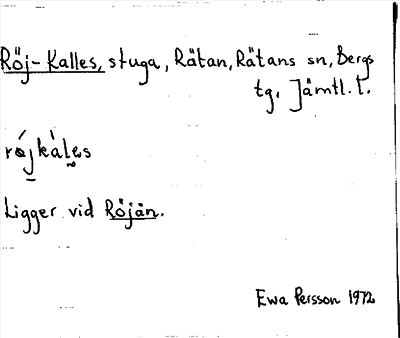 Röj-Kalles, stuga, Rätan, Rätans sn, Bergs
tg. Jämtl. l.
røjkàles
Ligger vid Röjån.
Ewa Persson 1972